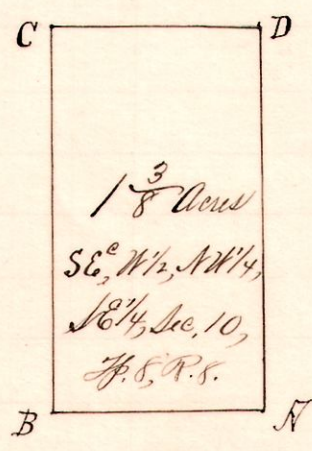 C D
1 3/8 Acres
SEᶜ, W½, NW¼,
SE¼, Sec. 10,
Tp. 8, R. 8.
B N